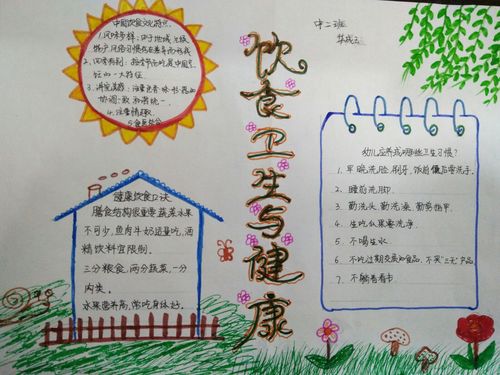 中国饮食文化特点
1. 风味多样：由于地域、气候
2. 四季有别：按季节而吃是中国烹
饪的一大特征
3. 讲究美感：注重色、香、味、形、器
协调一致、和谐统一。
4. 注重情趣
5. 食医结合
健康饮食口诀
膳食结构很重要 蔬菜水果
不可少，鱼肉牛奶适量吃，酒
精饮料宜限制。
三分粮食，两分蔬菜，一分
肉类。
水果营养高，常吃身体好。
饮食卫生与健康
中二班
幼儿应养成哪些卫生习惯？
1. 早晚洗脸、刷牙、饭前便后要洗手。
2. 睡前洗脚。
3. 勤洗头、勤洗澡、勤剪指甲。
4. 生吃瓜果要洗净。
5. 不喝生水
6. 不吃过期变质的食品，不买“三无”产品
7. 不躺着看书